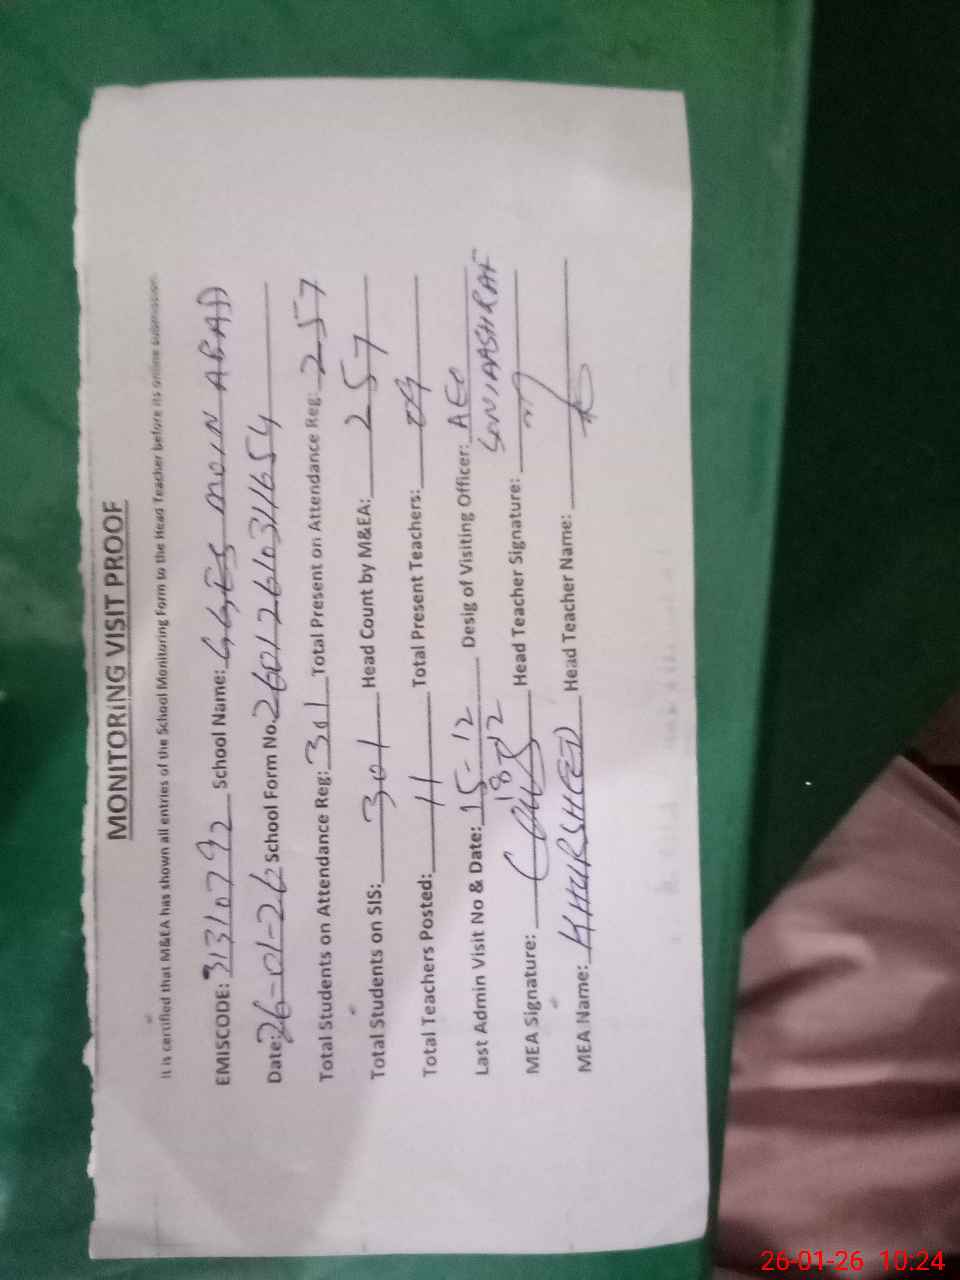 MONITORING VISIT PROOF
It is certified that M&EA has shown all entries of the School Monitoring Form to the Head Teacher before its online submission.
EMISCODE: 31310792 School Name: GGES MOIN ABAD
Date: 26-01-26 School Form No. 260126103411654
Total Students on Attendance Reg: 301 Total Present on Attendance Reg: 257
Total Students on SIS: 301 Head Count by M&EA: 257
Total Teachers Posted: 11 Total Present Teachers: 09
Last Admin Visit No & Date: 15-12 Desig of Visiting Officer: AEO
18-12 SONIA ASHRAF
MEA Signature: Head Teacher Signature:
MEA Name: KHURSHEED Head Teacher Name:
26-01-26 10:24